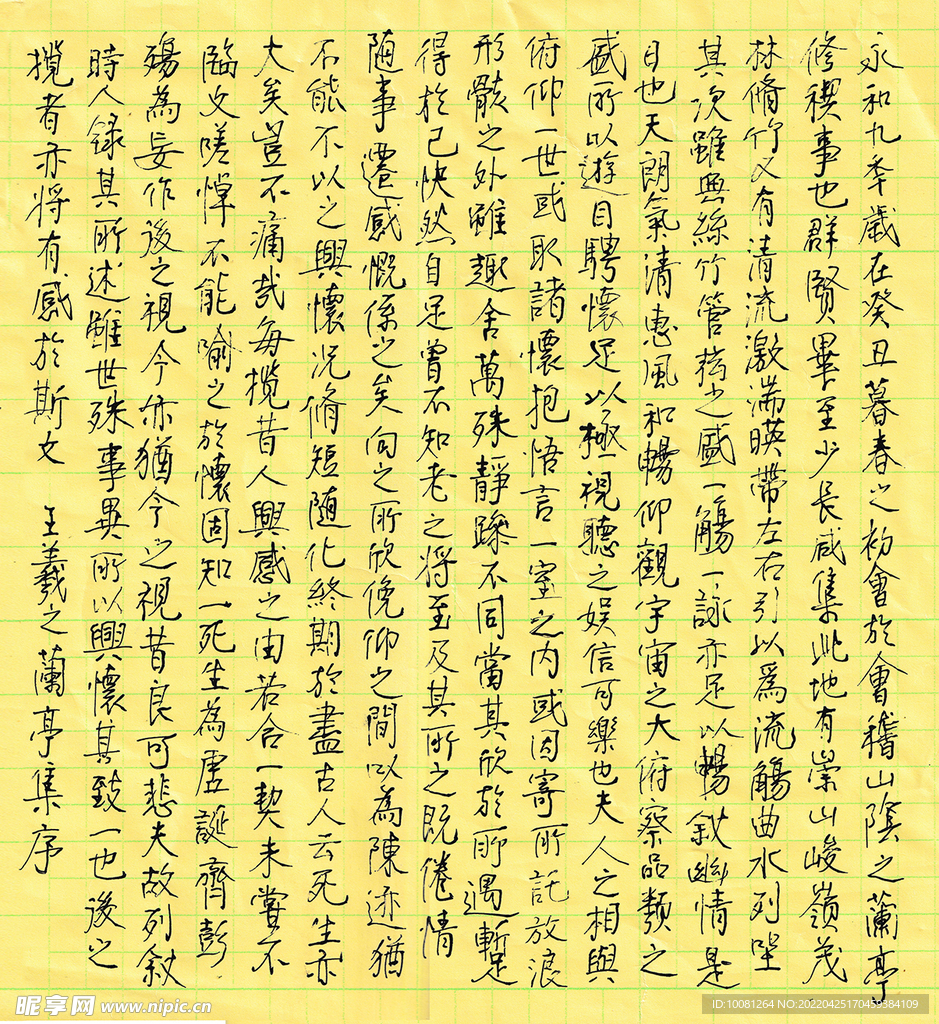 永和九年歲在癸丑暮春之初會於會稽山陰之蘭亭
修禊事也群賢畢至少長咸集此地有崇山峻嶺茂
林脩竹又有清流激湍暎帶左右引以為流觴曲水列坐
其次雖無絲竹管弦之盛一觴一詠亦足以暢敘幽情是
日也天朗氣清惠風和暢仰觀宇宙之大俯察品類之
盛所以遊目騁懷足以極視聽之娛信可樂也夫人之相與
俯仰一世或取諸懷抱悟言一室之內或因寄所託放浪
形骸之外雖趣舍萬殊靜躁不同當其欣於所遇暫足
得於己快然自足曾不知老之將至及其所之既倦情
隨事遷感慨係之矣向之所欣俛仰之間以為陳迹猶
不能不以之興懷況脩短隨化終期於盡古人云死生亦
大矣豈不痛哉每攬昔人興感之由若合一契未嘗不
臨文嗟悼不能喻之於懷固知一死生為虛誕齊彭
殤為妄作後之視今亦猶今之視昔良可悲夫故列敘
時人錄其所述雖世殊事異所以興懷其致一也後之
攬者亦將有感於斯文 王羲之蘭亭集序
昵享网 www.nipic.cn
ID:10081264 NO:20220425170459384109